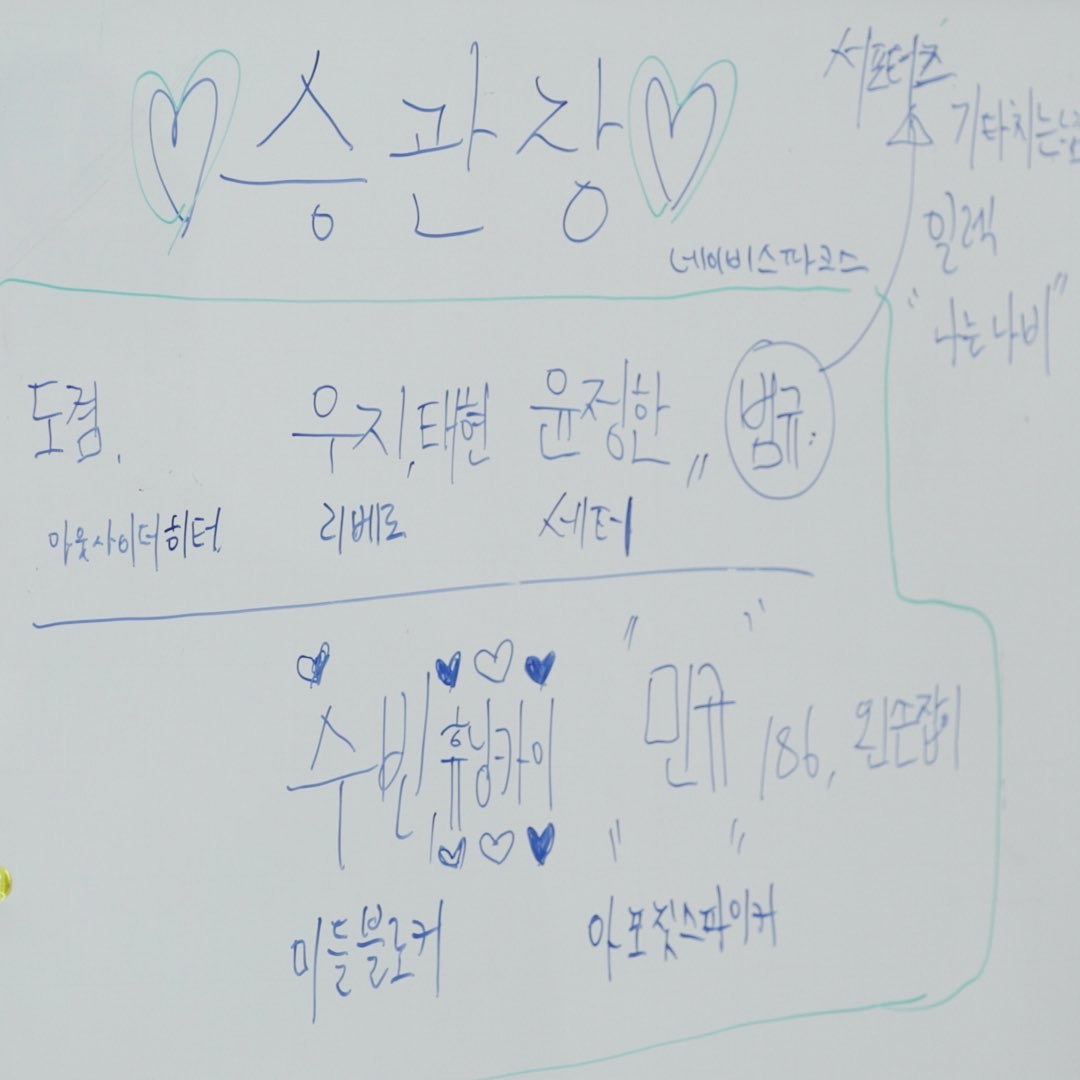 승관장
서포터즈
기타치는
일렉
"나는 나비"
네이비스파크스
도겸, 우지, 태현 윤정한,, 범규
아웃사이더히터 리베로 세터
수빈, 휴닝카이 "민규" 186, 왼손잡이
미들블로커 아포짓스파이커